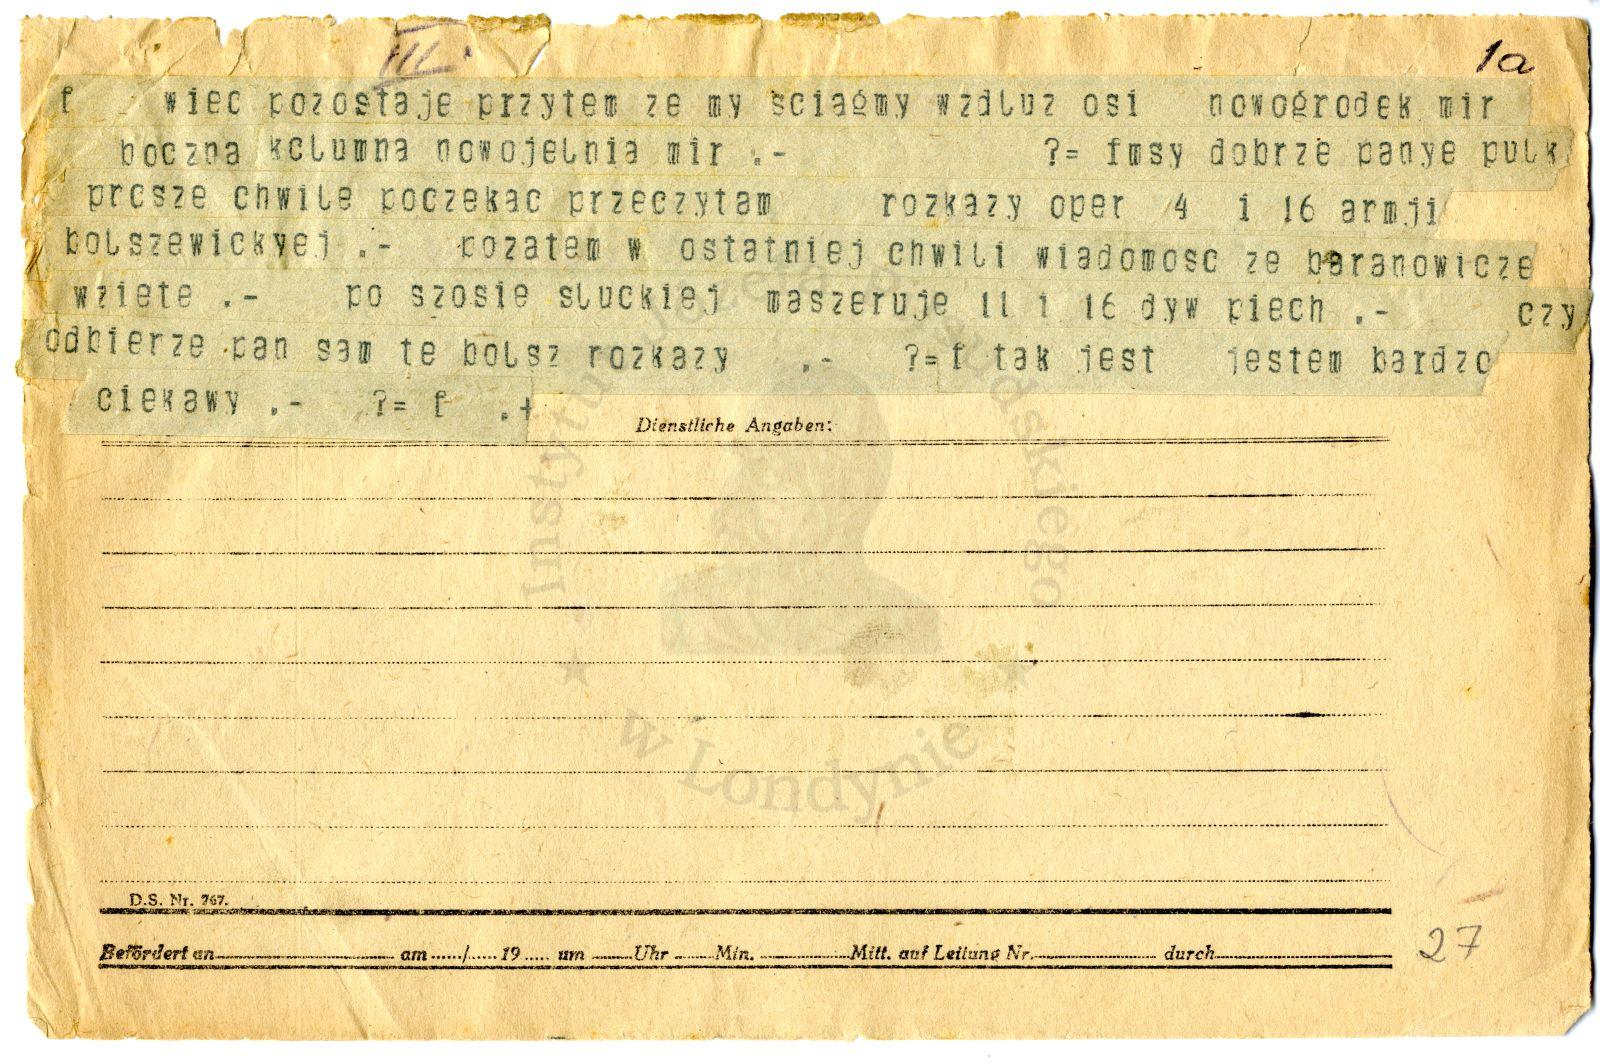 III.
1a
f wiec pozostaje przytem ze my sciagmy wzdluz osi nowogrodek mir
boczna kolumna nowojelnia mir .- ?= fmsy dobrze panye pulk
prcsze chwile poczekac przeczytam rozkazy oper 4 i 16 armji
bolszewickyej .- pozatem w ostatniej chwili wiadomosc ze baranowicze
wziete .- po szosie sluckiej maszeruje 11 i 16 dyw piech .- czy
odbierze pan sam te bolsz rozkazy .- ?=f tak jest jestem bardzo
ciekawy .- ?= f .+
Dienstliche Angaben:
Instytut Józefa Piłsudskiego
w Londynie
D.S. Nr. 767.
Befördert an am / 19 um Uhr Min. Mitt. auf Leitung Nr. durch
27